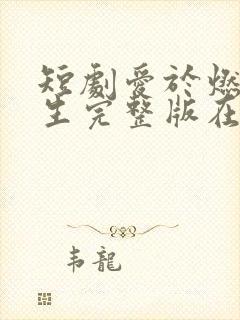 短劇愛於燃
生完整版在
韦龍